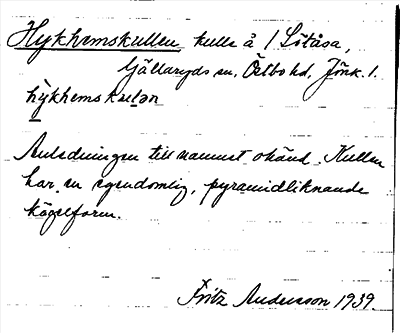 Hykhemskullen, kulle å 1 Sötåsa,
Gällaryds sn, Östbo hd, Jönk. l.
hykhemskulən
Anledningen till namnet okänd. Kullen
har en egendomlig, pyramidliknande
kägelform.
Fritz Andersson 1939.